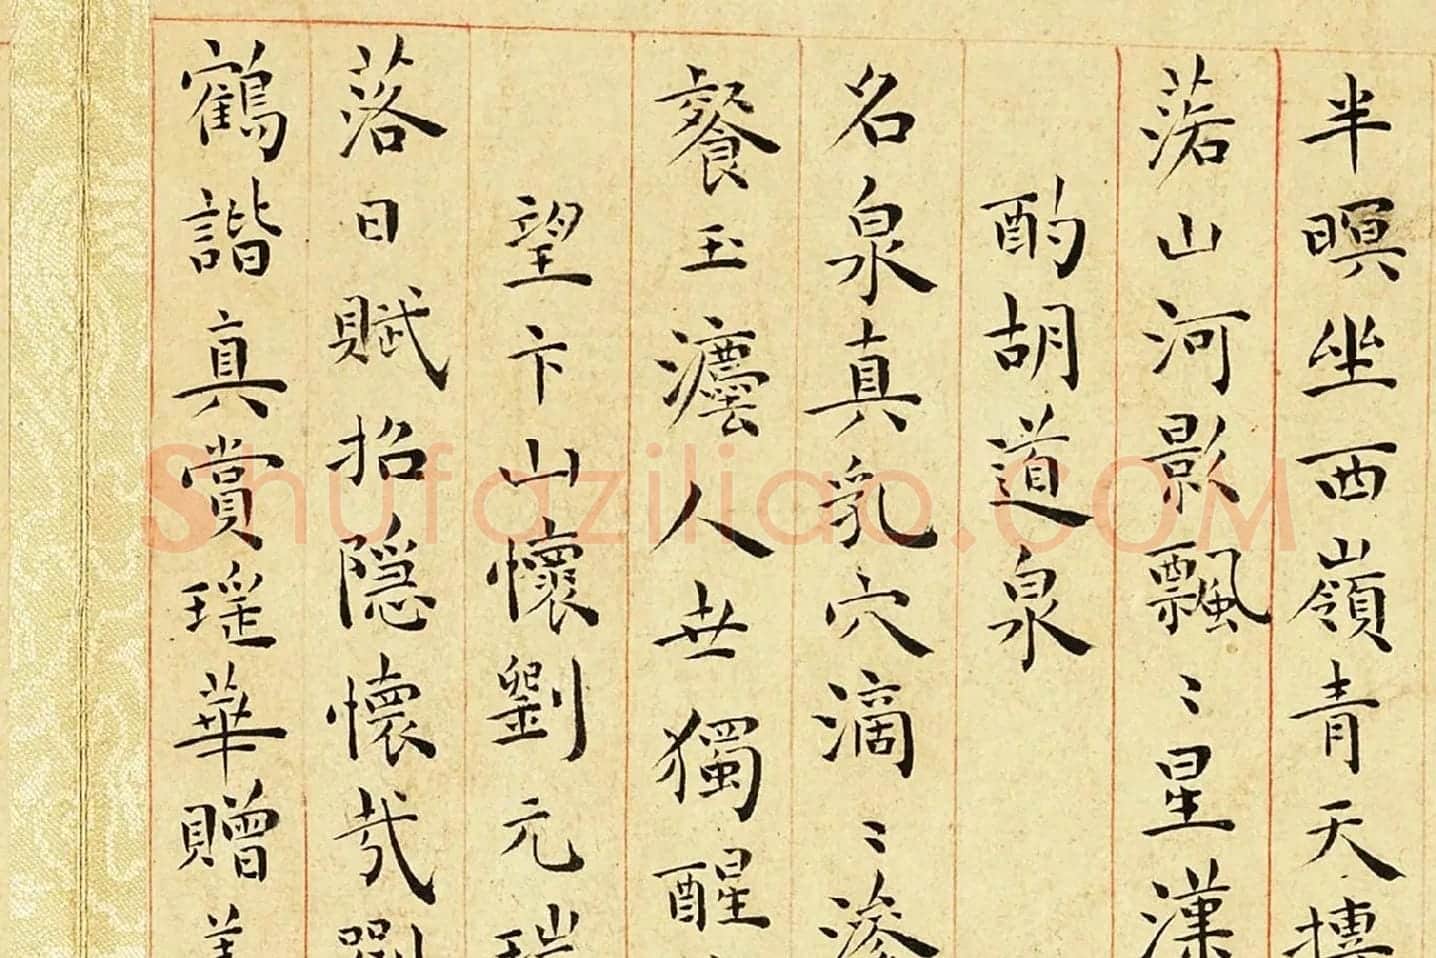 半暝坐西嶺青天摶
蕩山河影飄〻星漢
酌胡道泉
名泉真乳穴滴〻滲
餐玉瀣人世獨醒
望卞山懷劉元瑞
落日賦招隠懷㢤劉
鶴諧真賞瑶華贈美
shufaziliao.COM